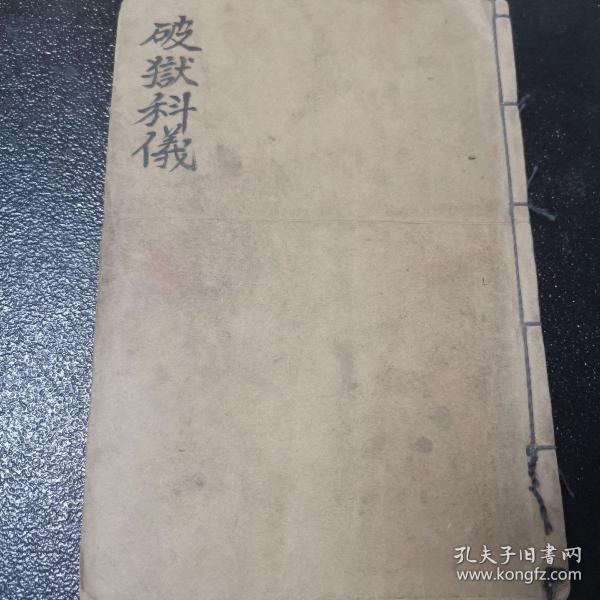 破獄科儀
孔夫子旧書网
www.kongfz.com